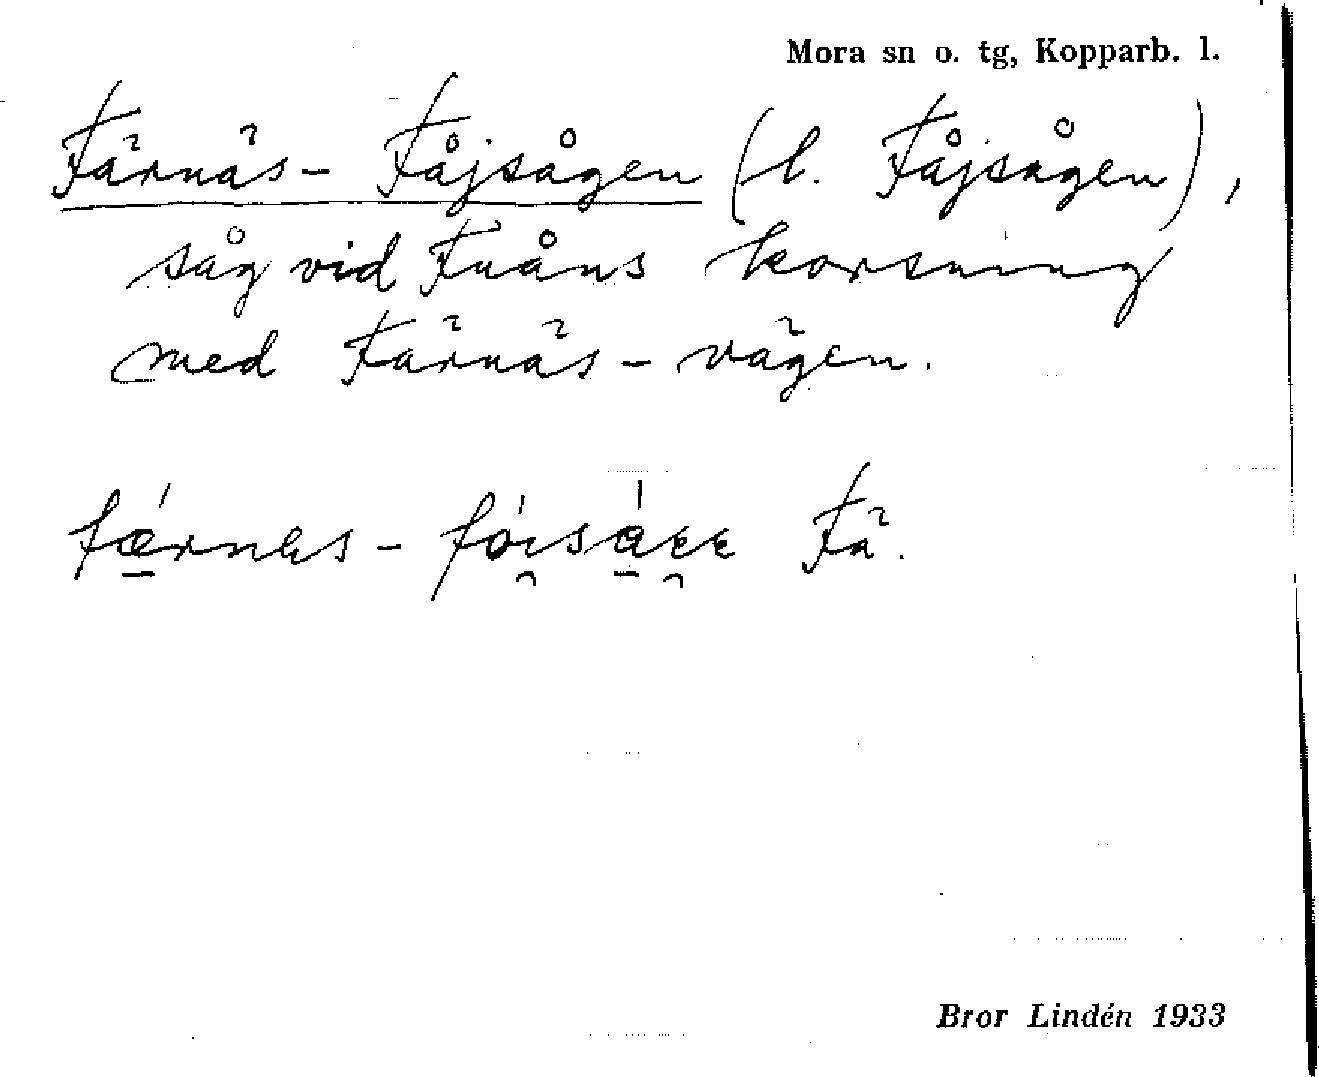 Mora sn o. tg, Kopparb. l.
Färnäs- Fåjsågen (l. Fåjsågen),
såg vid Fuåns korsning
med Färnäs-vägen.
Fä.
Bror Lindén 1933